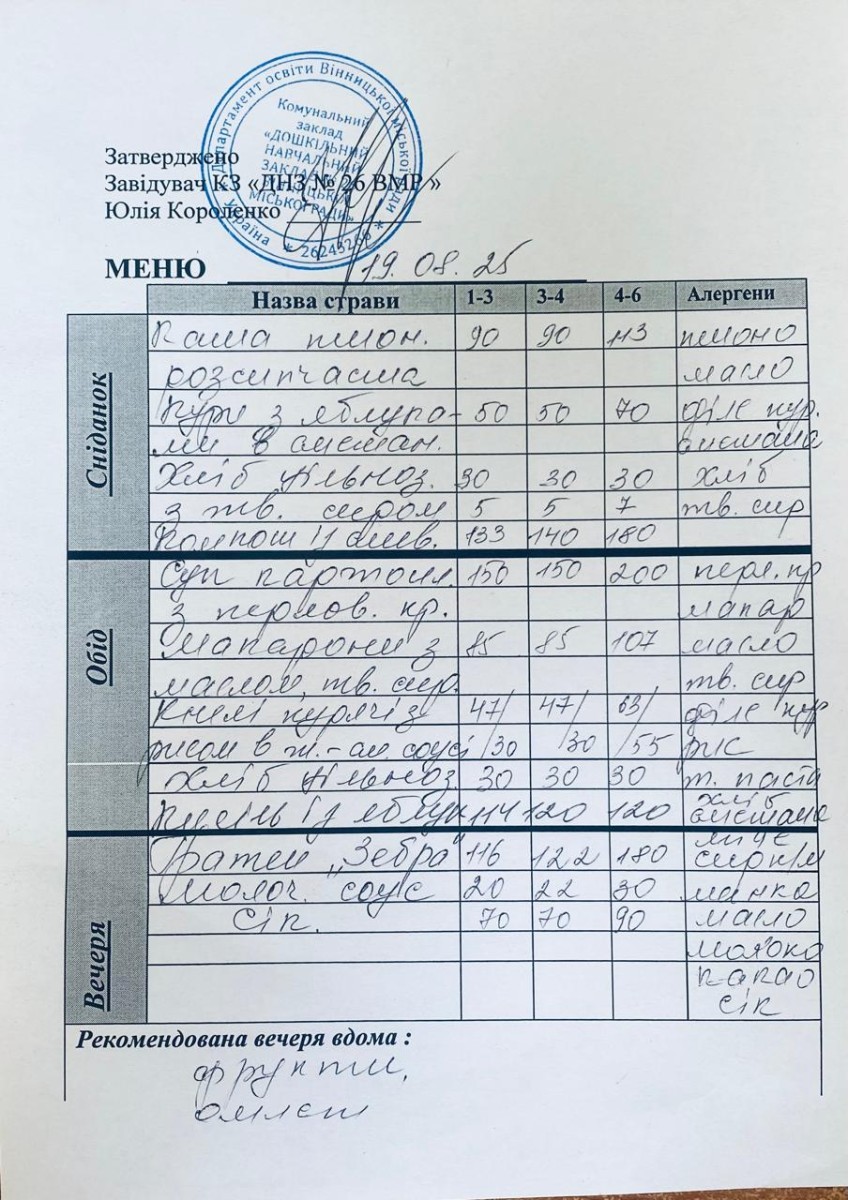 Департамент освіти Вінницької міської ради
Україна * 26243266 *
Комунальний
заклад
«ДОШКІЛЬНИЙ
НАВЧАЛЬНИЙ
ЗАКЛАД
МІСЬКОЇ РАДИ»
Затверджено
Завідувач КЗ «ДНЗ № 26 ВМР »
Юлія Короленко
МЕНЮ 19.08.25
Назва страви 1-3 3-4 4-6 Алергени
Сніданок
Каша пшон. 90 90 113 пшоно
розсипчаста масло
Кури з яблука- 50 50 70 філе кур.
ми в сметан. сметана
Хліб цільноз. 30 30 30 хліб
з тв. сиром 5 5 7 тв. сир
Компот із слив. 133 140 180
Обід
Суп картопл. 150 150 200 перл. кр
з перлов. кр. макар
Макарони з 85 85 107 масло
маслом, тв. сир. тв. сир
Кнелі курячі з 47/ 47/ 63/ філе кур
рисом в т.-см. соусі /30 /30 /55 рис
Хліб цільноз. 30 30 30 т. паста
Кисіль із яблук 114 120 120 хліб сметана
Вечеря
"Зебра" 116 122 180 яйце сир к/м
Молоч. соус 20 22 30 манка
Сік. 70 70 90 масло
молоко
какао
сік
Рекомендована вечеря вдома :
фрукти,
омлет